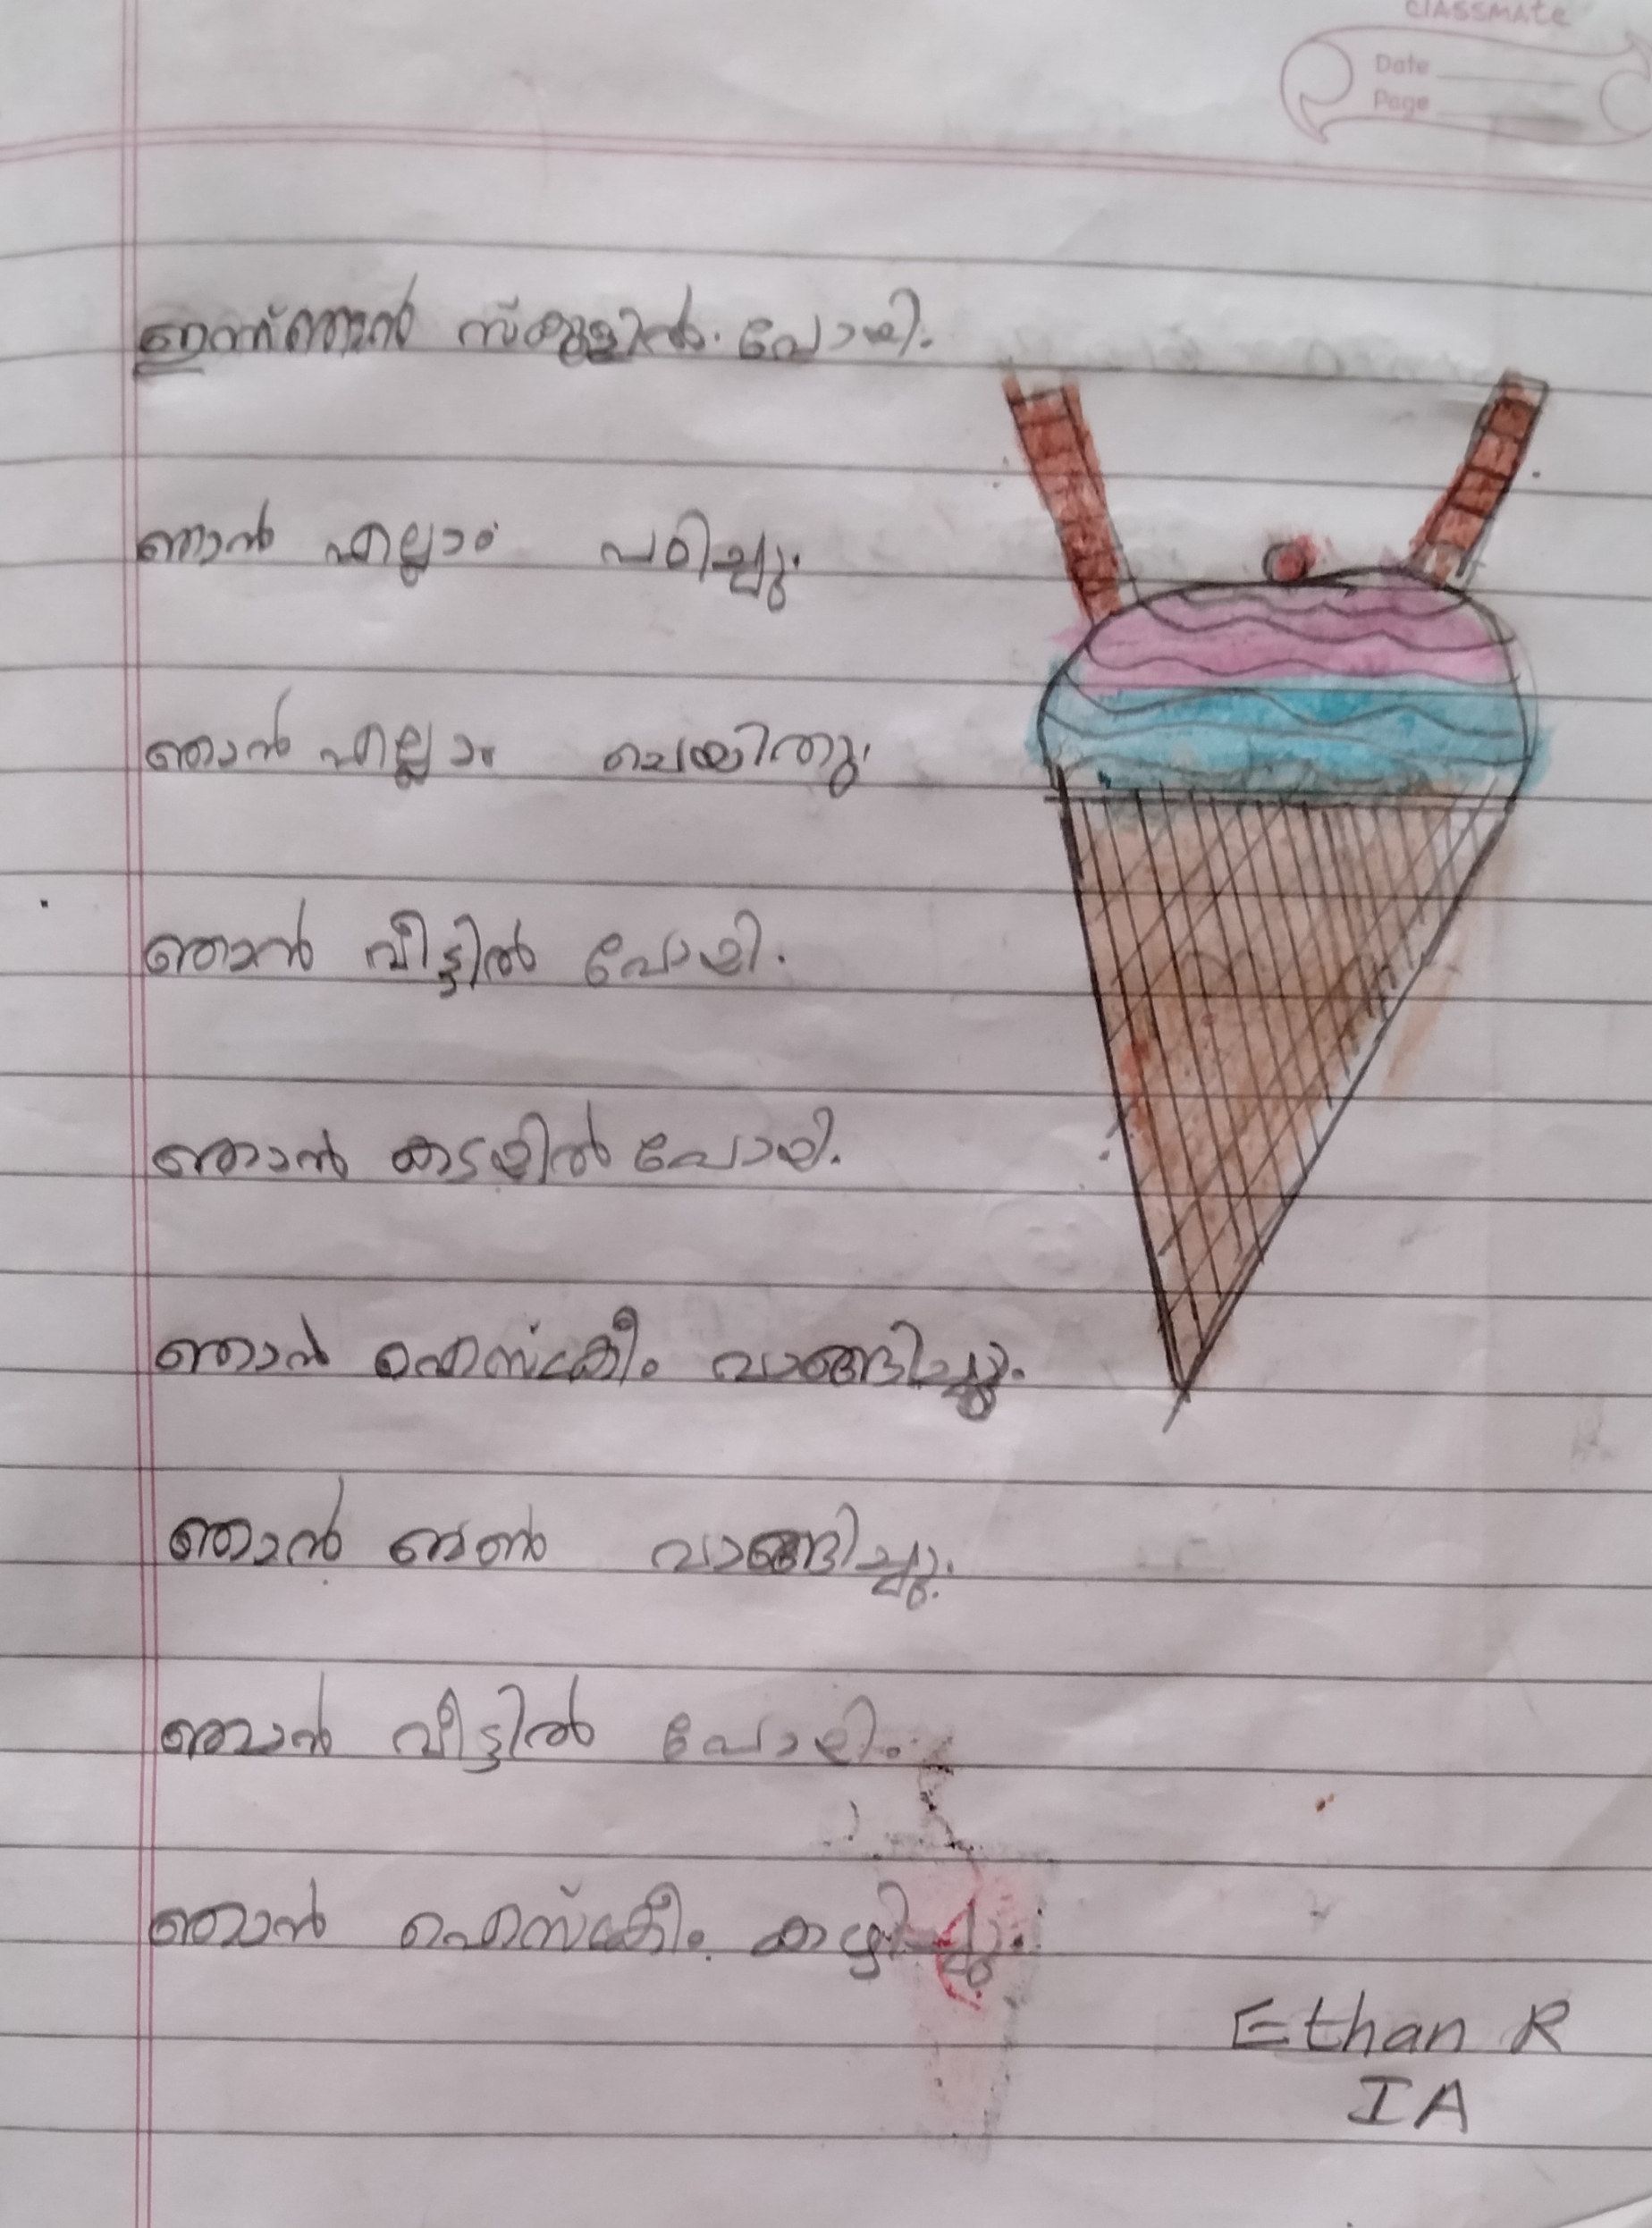 classmate
Date
Page
ഇന്ന് ഞാൻ സ്കൂളിൽ. പോയി.
ഞാൻ എല്ലാം പഠിച്ചു.
ഞാൻ എല്ലാം ചെയിതു.
ഞാൻ വീട്ടിൽ പോയി.
ഞാൻ കടയിൽ പോയി.
ഞാൻ ഐസ്ക്രീം വാങ്ങിച്ചു.
ഞാൻ ബൺ വാങ്ങിച്ചു.
ഞാൻ വീട്ടിൽ പോയി.
ഞാൻ ഐസ്ക്രീം. കഴിച്ചു.
Ethan R
IA